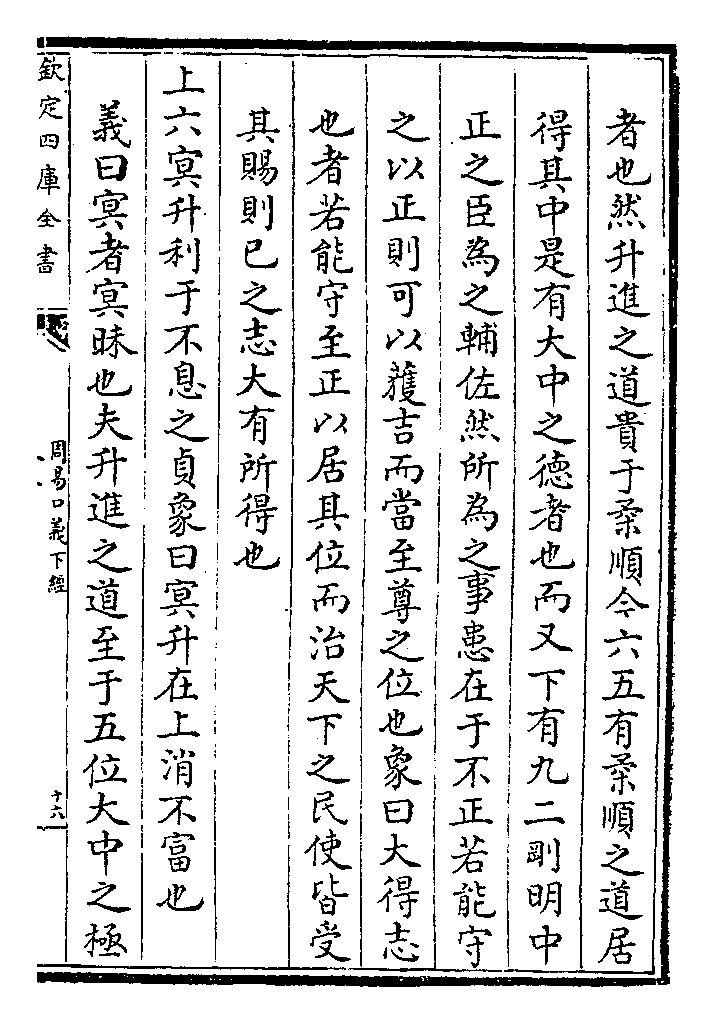 者也然升進之道貴于柔順今六五有柔順之道居
得其中是有大中之德者也而又下有九二剛明中
正之臣為之輔佐然所為之事患在于不正若能守
之以正則可以獲吉而當至尊之位也象曰大得志
也者若能守至正以居其位而治天下之民使皆受
其賜則已之志大有所得也
上六冥升利于不息之貞象曰冥升在上消不富也
義曰冥者冥昧也夫升進之道至于五位大中之極
欽定四庫全書
周易口義下經
十六